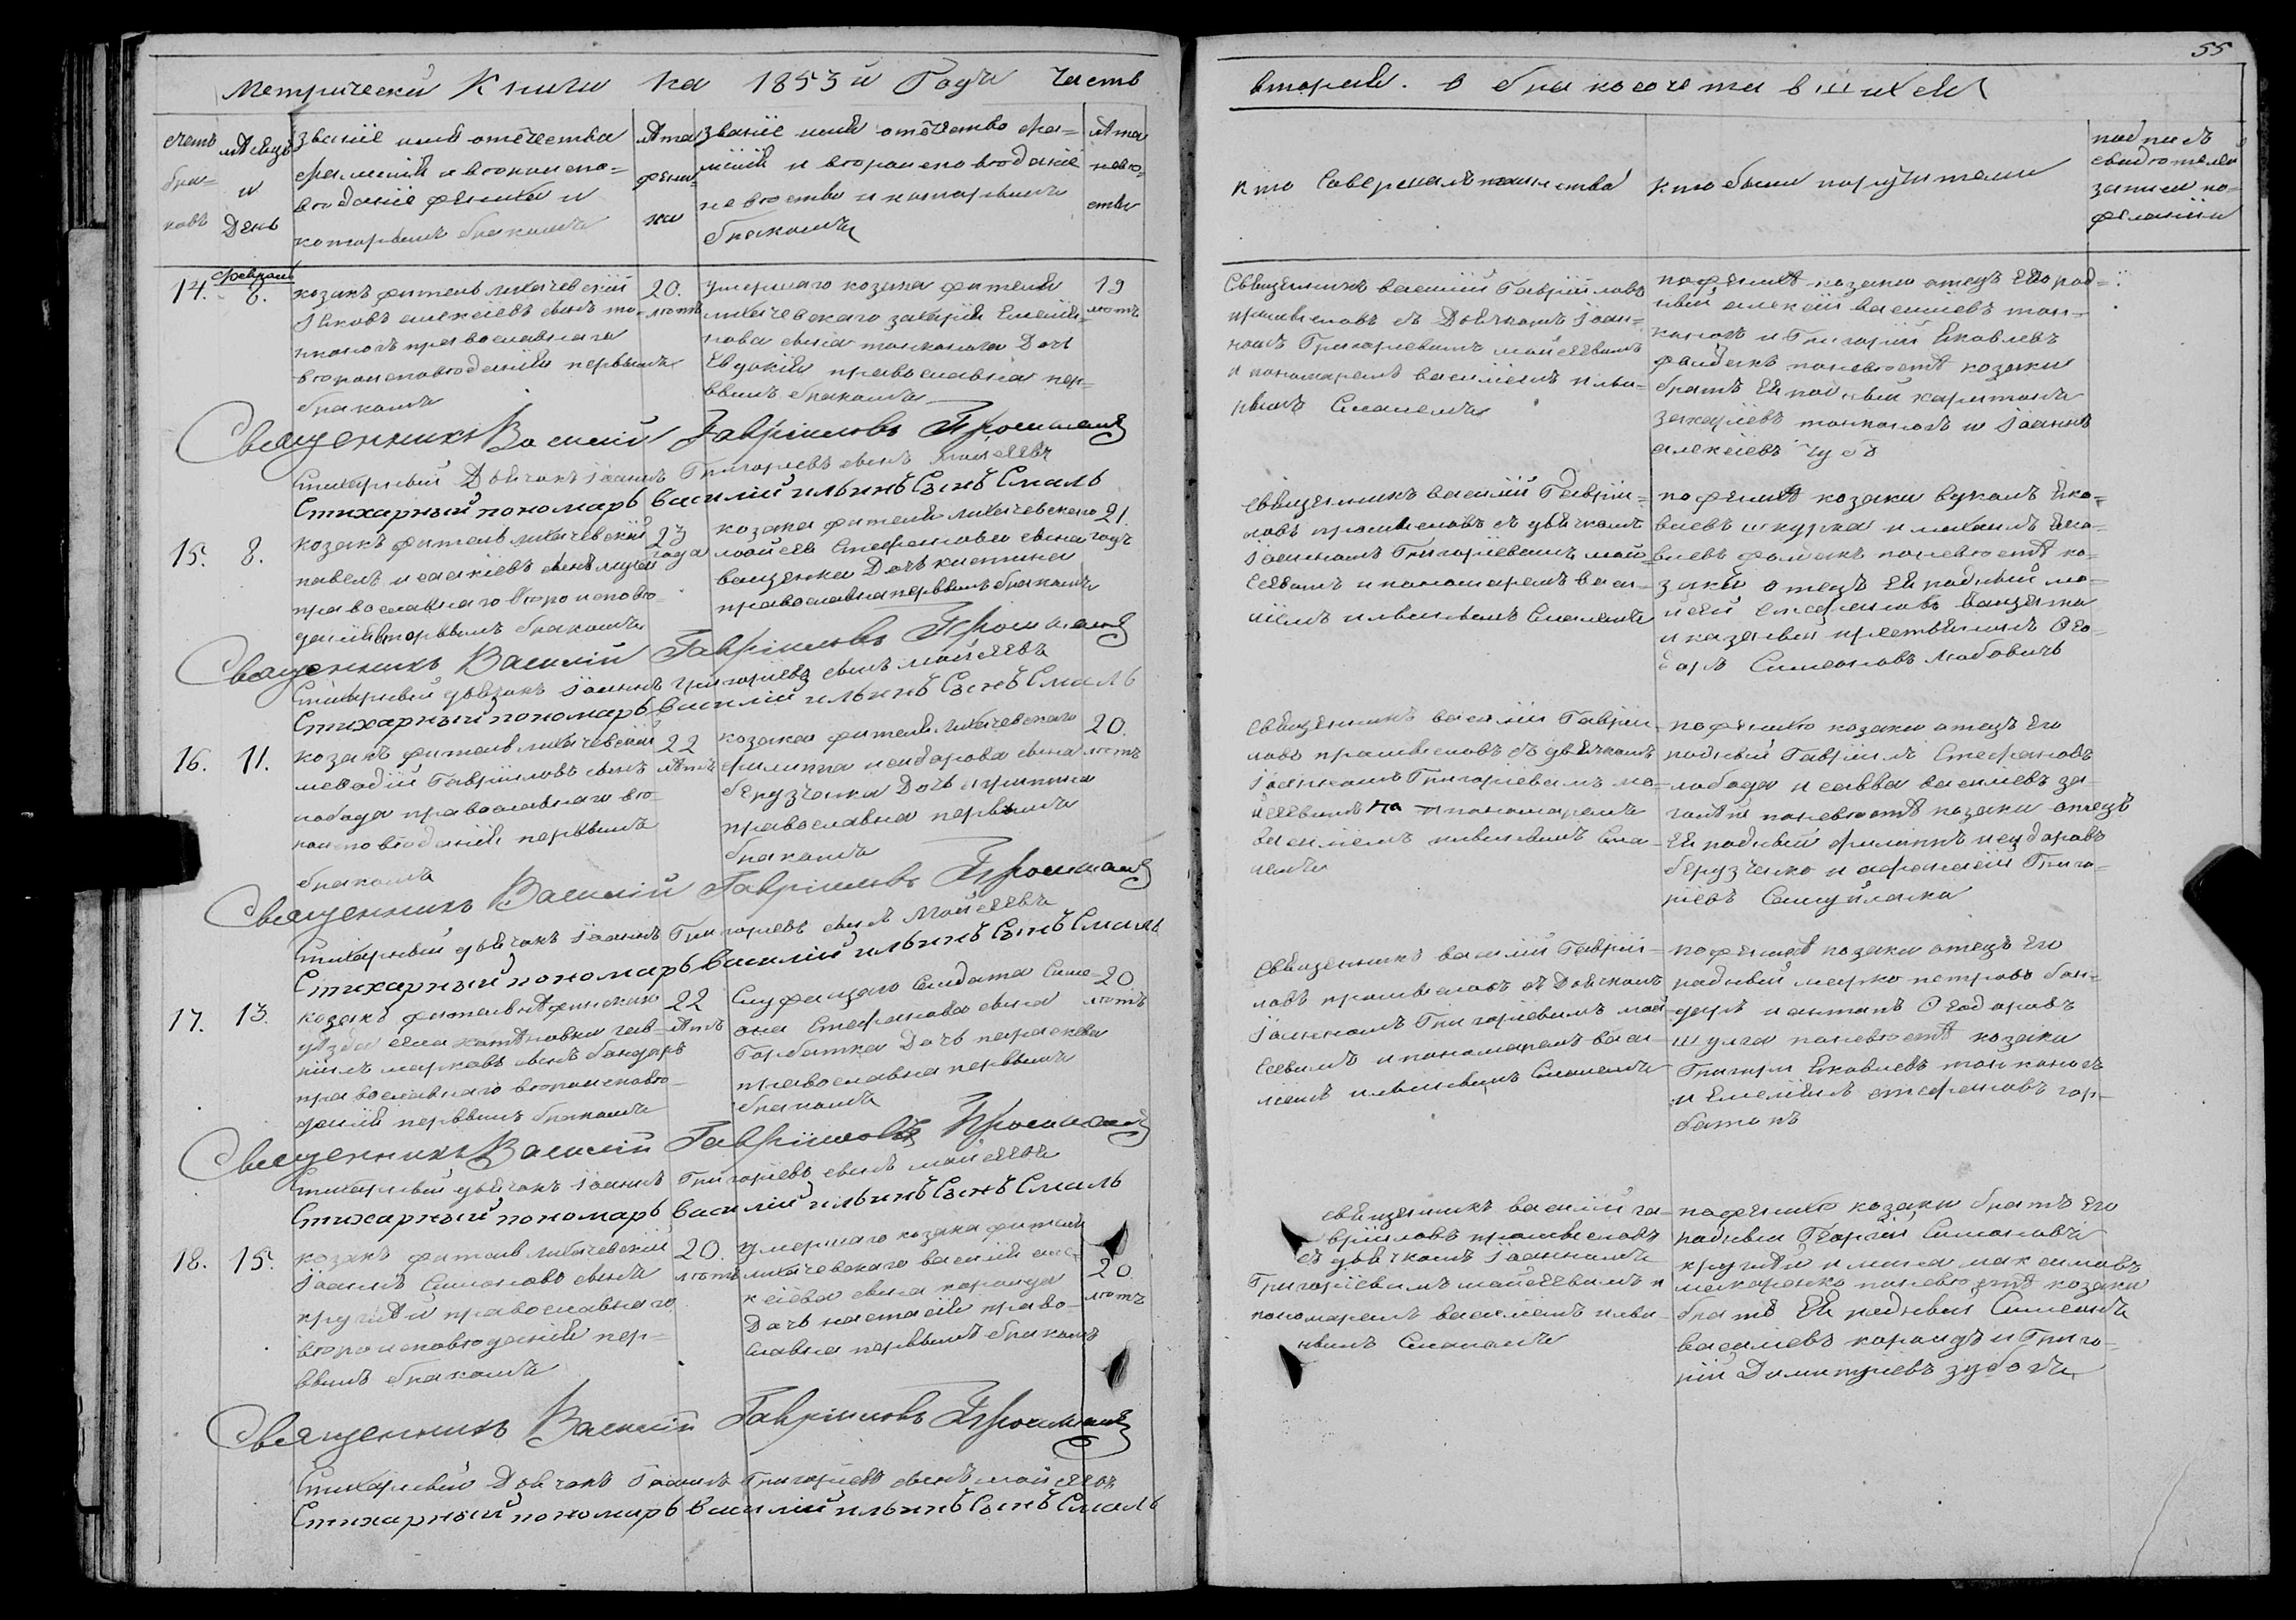 55
Метрической Книги на 1853й Годъ часть
второй. о бракосочетавшихся
счетъ браковъ
мѣсяцъ и День
званіе имя отечество
фамилія и вѣроиспо=
вѣданіе жениха и
которымъ бракомъ
лѣта жениха
званіе имя отечество фа=
милія и вѣроисповѣданіе
невѣсты и которымъ
бракомъ
лѣта невѣсты
кто Совершалъ таинство
кто были поручители
подпись
свидѣтелей
записи по
желанію
14.
февраль
8.
козакъ житель лихачевскій
Іяковъ алексіевъ сынъ то
нконогъ православнаго
вѣроисповѣданія первымъ
бракомъ
20.
лѣтъ
умершаго козака жителя
лихачевскаго захарія Емелія
нова сына тонконога Доч
Евдокія православна пер=
вымъ бракомъ
19
лѣтъ
Священникъ василій Гавріиловъ
с Дьячкомъ Іоан=
номъ Григориевымъ мойсеевымъ
и пономаремъ василіемъ ильи=
нымъ Смалемъ
по женихѣ козаки отецъ Его род=
ный алексій василіевъ тон=
коногъ и Григорій Яковлевъ
по невѣстѣ козаки
братъ Ея родный харитонъ
захаріевъ тонконогъ и Іоаннъ
алексіевъ Чубъ
Священникъ Василій Гавріиловъ
Стихарный Дьячокъ Іоаннъ Григориевъ сынъ мойсеевъ
Стихарный пономарь василій ильинъ Сынъ Смаль
15.
8.
козакъ житель лихачевскій
павелъ исаакіевъ сынъ
православнаго вѣроисповѣ
данія вторымъ бракомъ
23
года
козака жителя лихачевскаго
мойсея Стефанова сына
ващенка Дочь
православна первымъ бракомъ
21.
годъ
священникъ василій Гавріи=
ловъ с дьячкомъ
Іоанномъ Григоріевымъ мой
сеевымъ и пономаремъ васи=
ліемъ ильинымъ Смалемъ
по женихѣ козаки лукашъ Яко=
влевъ шкурка и михаилъ Яко=
влевъ по невѣстѣ ко=
заки отецъ Ея родный мо=
йсей стефановъ ващенко
и казенный крестьянинъ Ѳео=
доръ Симеоновъ любовичъ
Священникъ Василій Гавріиловъ
Стихарный дьячокъ Іоаннъ григоріевъ сынъ мойсеевъ
Стихарный пономарь василій ильинъ Сынъ Смаль
16.
11.
козакъ житель лихачевскій
меѳодій Гавріиловъ сынъ
лобода православнаго вѣ=
роисповѣданія первымъ
бракомъ
22
лѣтъ
козака жителя лихачевскаго
филиппа исидорова сына
Дочь агрипина
православна первымъ
бракомъ
20.
лѣтъ
священникъ василій Гавріи=
ловъ с дьячкомъ
Іоанномъ Григориевымъ мо=
йсеевымъ и пономаремъ
василіемъ ильинымъ Сма=
лемъ
по женихѣ козаки отецъ Его
родный Гавріилъ Стефановъ
лобода и савва василіевъ
по невѣстѣ козаки отецъ
Ея родный филиппъ исидоровъ
и афанасій Григо=
ріевъ
Священникъ Василій Гавріиловъ
Стихарный дьячокъ Іоаннъ Григориевъ сынъ Мойсеевъ
Стихарный пономарь василій ильинъ Сынъ Смаль
17.
13.
козакъ житель нѣжинскаго
уѣзда села гав=
ріилъ марковъ сынъ бондарь
православнаго вѣроисповѣ
данія первымъ бракомъ
22
лѣтъ
Служащаго Солдата Симе=
она Стефанова сына
Горбатка Дочь параскева
православна первымъ
бракомъ
20
лѣтъ
священникъ василій Гавріи=
ловъ с Дьячкомъ
Іоанномъ Григоріевымъ мой
сеевымъ и пономаремъ васи
ліемъ ильинымъ Смалемъ
по женихѣ козаки отецъ Его
родный марко петровъ бон=
дарь и антипъ Ѳеодоровъ
шулга по невѣстѣ козаки
Григорій Яковлевъ тонконогъ
и Емеліянъ стефановъ гор=
батокъ
Священникъ Василій Гавріиловъ
Стихарный дьячокъ Іоаннъ Григоріевъ сынъ мойсеевъ
Стихарный пономарь василій ильинъ Сынъ Смаль
18.
15.
козакъ житель лихачевскій
Іоаннъ Симоновъ сынъ
православнаго
вѣроисповѣданія пер=
вымъ бракомъ
20.
лѣтъ
умершаго козака жителя
лихачевскаго василія але=
ксіева сына
Дочь настасія право=
славна первымъ бракомъ
20
лѣтъ
священникъ василій га=
вріиловъ
с дьячкомъ Іоанномъ
Григоріевымъ мойсеевымъ и
пономаремъ василіемъ ильи=
нымъ Смалемъ
по женихѣ козаки братъ Его
родный Георгій Симоновъ
максимовъ
макаренко по невѣстѣ козаки
братъ Ея родный Симеонъ
василіевъ и Григо=
рій Димитріевъ
Священникъ Василій Гавріиловъ
Стихарный Дьячокъ Іоаннъ Григоріевъ сынъ мойсеевъ
Стихарный пономарь василій ильинъ Сынъ Смаль